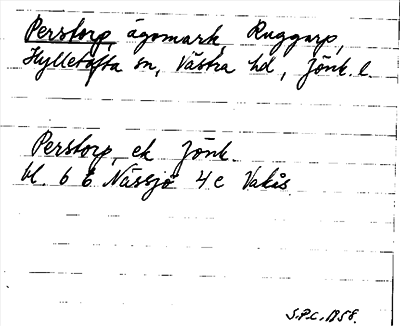 Perstorp, ägomark, Ruggarp,
Hylletofta sn, Västra hd, Jönk. l.
Perstorp, ek Jönk.
bl. 6 E Nässjö 4 c Vakås
S.P.C. 1958.